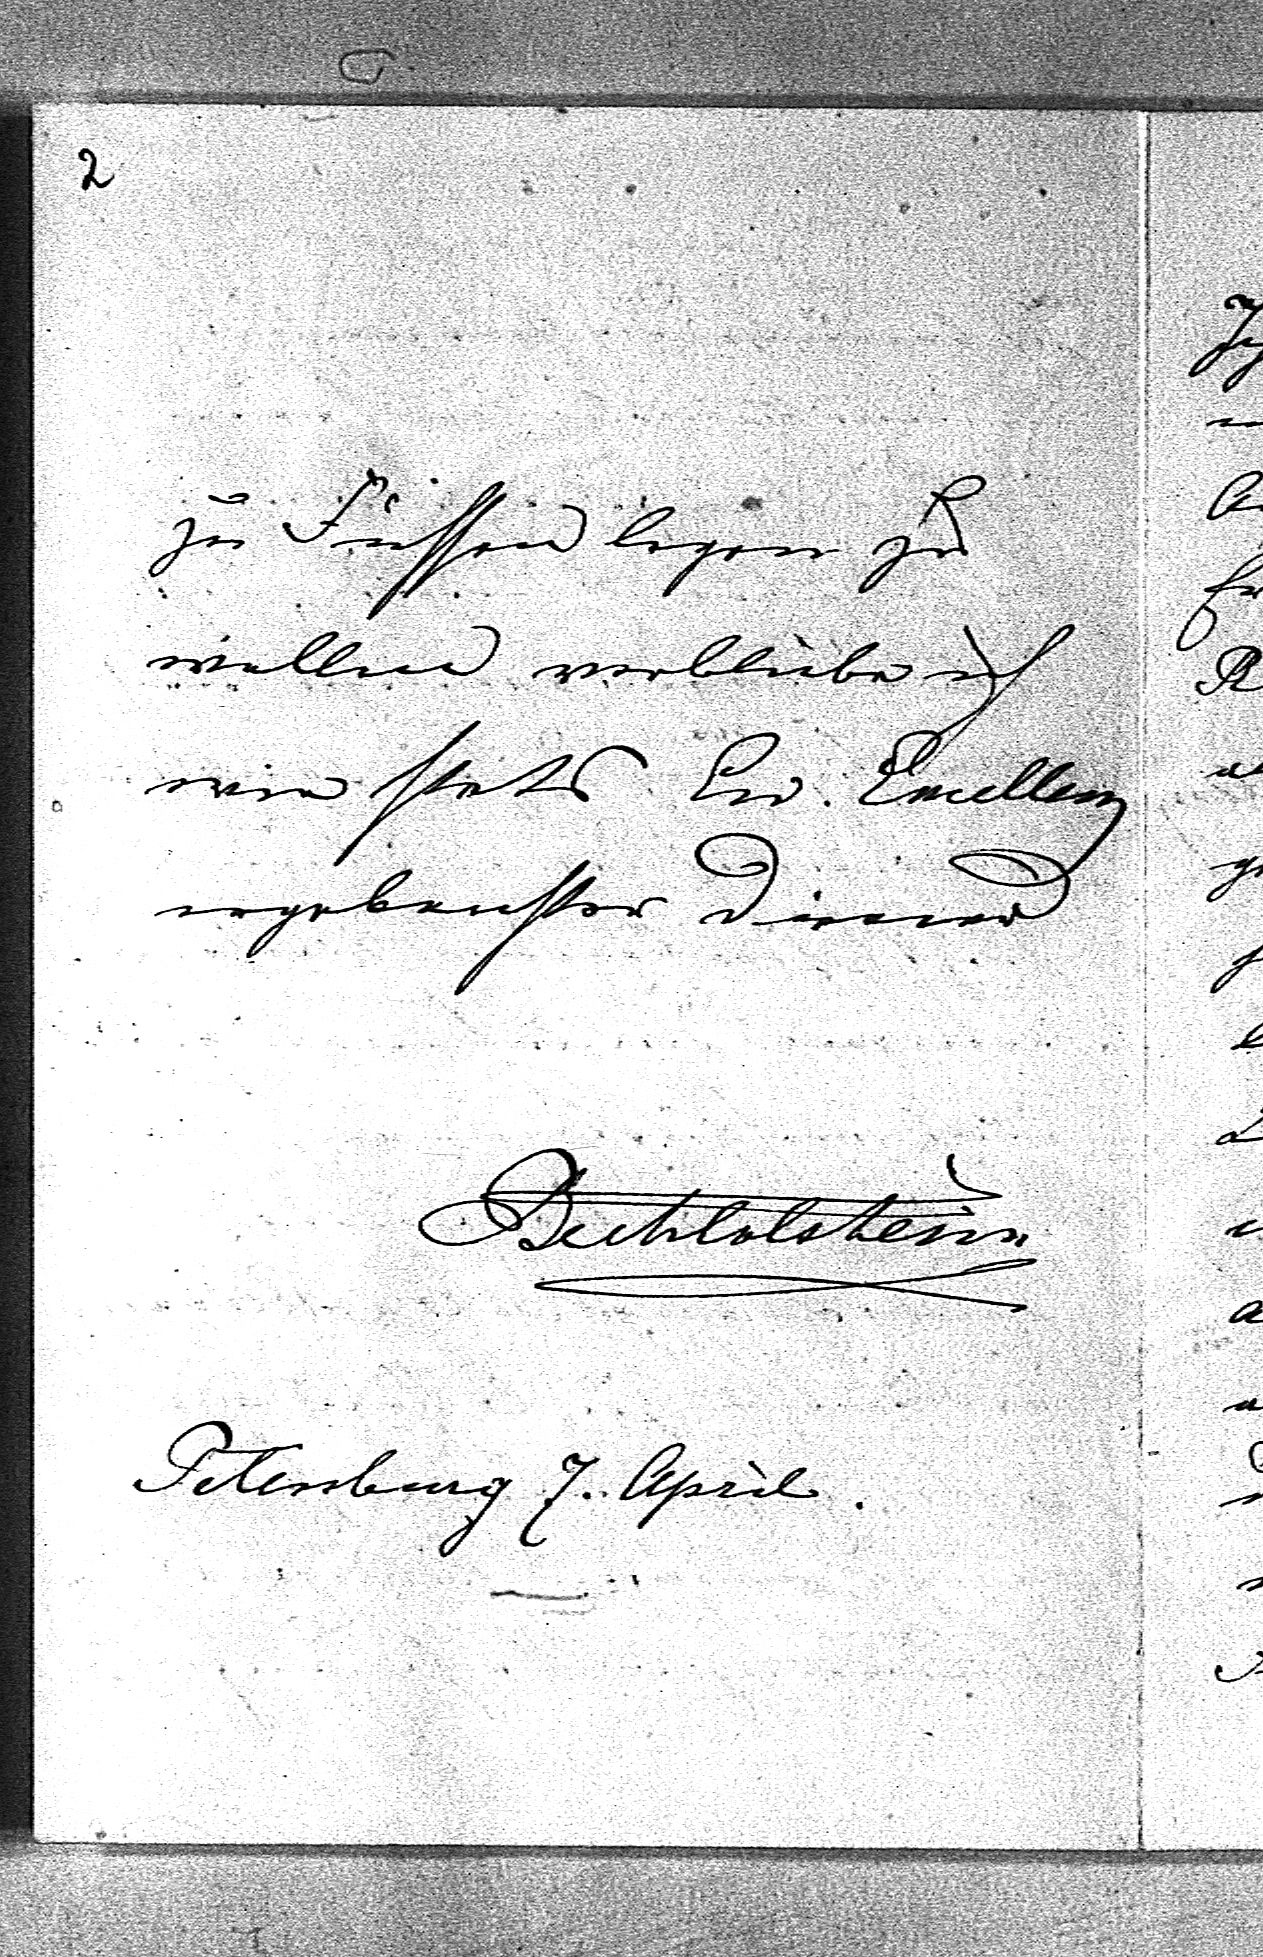 2
zu Füssen legen zu
wollen verbleibe ich
wie stets Ew. Excellenz
ergebenster Diener
Bechtolsheim
Petersburg 7. April.